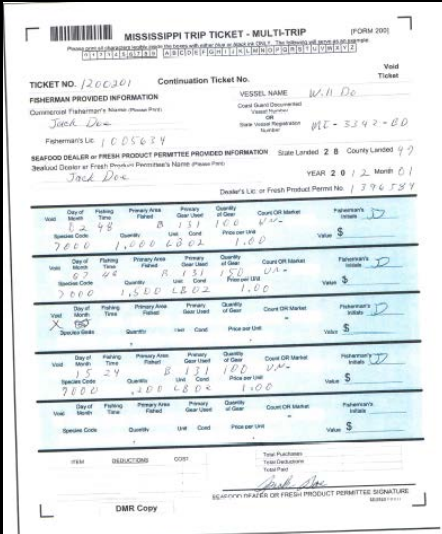 MISSISSIPPI TRIP TICKET - MULTI-TRIP [FORM 200]
Please print all characters legibly inside the boxes with either blue or black ink ONLY. The following will serve as an example.
0 1 2 3 4 5 6 7 8 9 A B C D E F G H I J K L M N O P Q R S T U V W X Y Z
Void Ticket
TICKET NO. 1200301 Continuation Ticket No.
FISHERMAN PROVIDED INFORMATION VESSEL NAME Will Do
Commercial Fisherman's Name (Please Print) Coast Guard Documented Vessel Number
Jack Doe OR
State Vessel Registration Number MI-3342-BD
Fisherman's Lic 1005634
SEAFOOD DEALER or FRESH PRODUCT PERMITTEE PROVIDED INFORMATION State Landed 28 County Landed 47
Seafood Dealer or Fresh Product Permittee's Name (Please Print)
Jack Doe YEAR 2012 Month 01
Dealer's Lic. or Fresh Product Permit No. 1396584
Void Day of Month Fishing Time Primary Area Fished Primary Gear Used Quantity of Gear Count OR Market Fisherman's Initials
02 48 B 131 100 UN- JD
Species Code Quantity Unit Cond Price per Unit Value $
7000 1,000 LB 02 1.00
Void Day of Month Fishing Time Primary Area Fished Primary Gear Used Quantity of Gear Count OR Market Fisherman's Initials
07 48 B 131 150 UN- JD
Species Code Quantity Unit Cond Price per Unit Value $
7000 1,500 LB 02 1.00
Void Day of Month Fishing Time Primary Area Fished Primary Gear Used Quantity of Gear Count OR Market Fisherman's Initials
X
Species Code Quantity Unit Cond Price per Unit Value $
Void Day of Month Fishing Time Primary Area Fished Primary Gear Used Quantity of Gear Count OR Market Fisherman's Initials
15 24 B 131 100 UN- JD
Species Code Quantity Unit Cond Price per Unit Value $
7000 ,200 LB 02 1.00
Void Day of Month Fishing Time Primary Area Fished Primary Gear Used Quantity of Gear Count OR Market Fisherman's Initials
Species Code Quantity Unit Cond Price per Unit Value $
ITEM DEDUCTIONS COST Total Purchases
Total Deductions
Total Paid
Jack Doe
SEAFOOD DEALER OR FRESH PRODUCT PERMITTEE SIGNATURE
DMR Copy